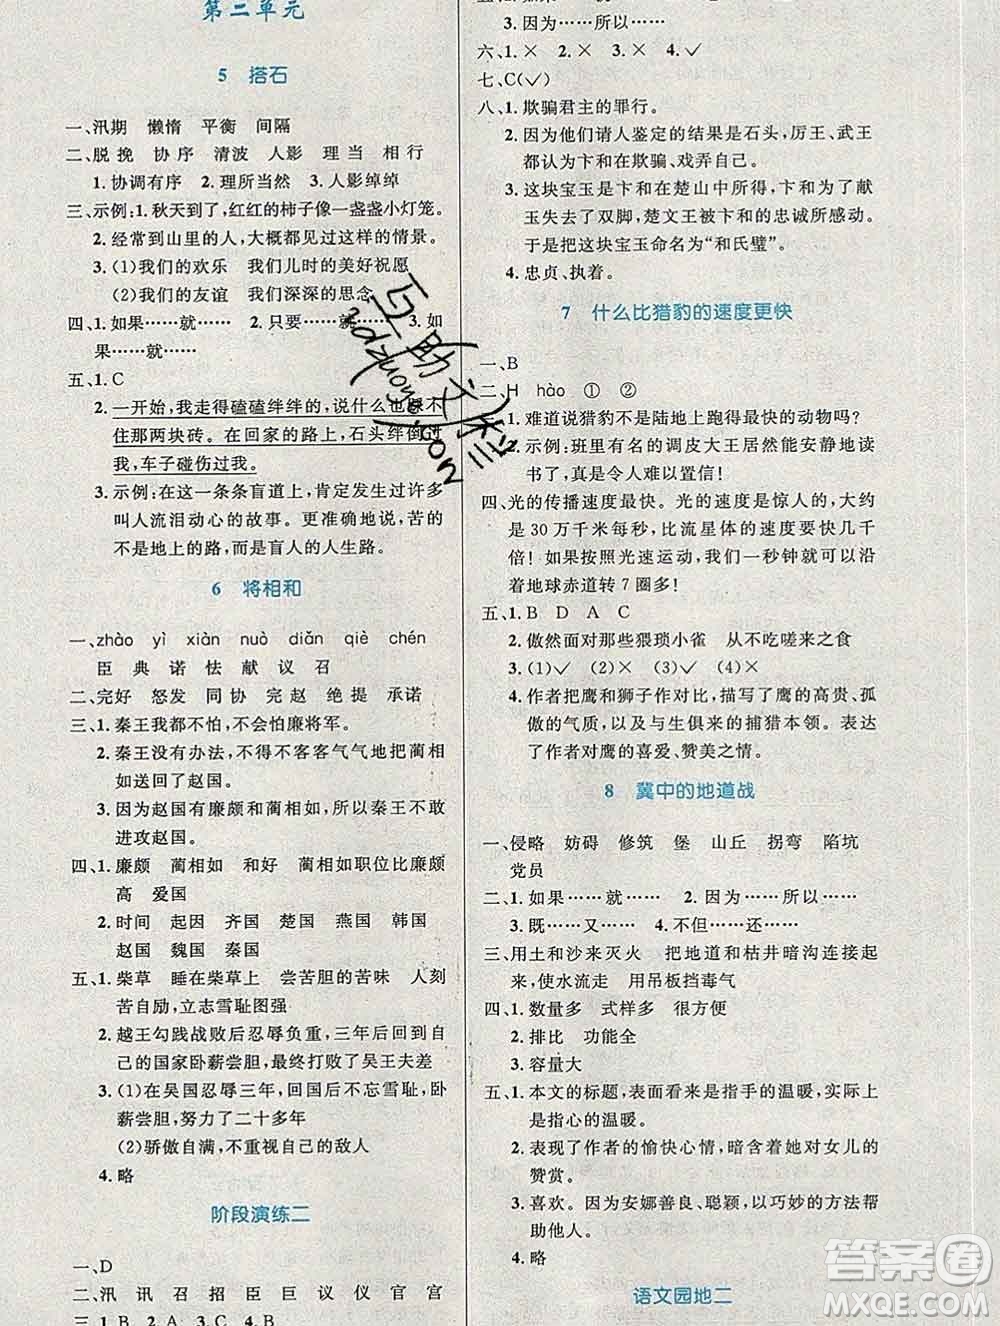 第二单元
5 搭石
一、汛期 懒惰 平衡 间隔
二、脱 挽 协 序 清 波 人 影 理 当 相 行
1. 协调有序 2. 理所当然 3. 人影绰绰
三、示例:1. 秋天到了,红红的柿子像一盏盏小灯笼。
2. 经常到山里的人,大概都见过这样的情景。
3. (1)我们的欢乐 我们儿时的美好祝愿
(2)我们的友谊 我们深深的思念
四、1. 如果……就…… 2. 只要……就…… 3. 如
果……就……
五、1. C
2. 一开始,我走得磕磕绊绊的,说什么也踩不
住那两块砖。在回家的路上,石头绊倒过
我,车子碰伤过我。
3. 示例:在这一条条盲道上,肯定发生过许多
叫人流泪动心的故事。更准确地说,苦的
不是地上的路,而是盲人的人生路。
6 将相和
一、zhào yì xiàn nuò diǎn qiè chén
臣 典 诺 怯 献 议 召
二、完好 怒发 同协 完赵 绝提 承诺
三、1. 秦王我都不怕,不会怕廉将军。
2. 秦王没有办法,不得不客客气气地把蔺相
如送回了赵国。
3. 因为赵国有廉颇和蔺相如,所以秦王不敢
进攻赵国。
四、1. 廉颇 蔺相如 和好 蔺相如职位比廉颇
高 爱国
2. 时间 起因 齐国 楚国 燕国 韩国
赵国 魏国 秦国
五、1. 柴草 睡在柴草上 尝苦胆的苦味 人刻
苦自励,立志雪耻图强
2. 越王勾践战败后忍辱负重,三年后回到自
己的国家卧薪尝胆,最终打败了吴王夫差
3. (1)在吴国忍辱三年,回国后不忘雪耻,卧
薪尝胆,努力了二十多年
(2)骄傲自满,不重视自己的敌人
4. 略
阶段演练二
一、D
二、汛 讯 召 招 臣 巨 议 仪 官 宫
3. 因为……所以……
六、1. × 2. × 3. × 4. ✓
七、C(✓)
八、1. 欺骗君主的罪行。
2. 因为他们请人鉴定的结果是石头,厉王、武王
都认为卞和在欺骗、戏弄自己。
3. 这块宝玉是卞和在楚山中所得,卞和为献
玉失去了双脚,楚文王被卞和的忠诚所感动。
于是把这块宝玉命名为“和氏璧”。
4. 忠贞、执着。
7 什么比猎豹的速度更快
一、B
二、H hào ① ②
三、1. 难道说猎豹不是陆地上跑得最快的动物吗?
2. 示例:班里有名的调皮大王居然能安静地读
书了,真是令人难以置信!
四、光的传播速度最快。光的速度是惊人的,大约
是30万千米每秒,比流星体的速度要快几千
倍!如果按照光速运动,我们一秒钟就可以沿
着地球赤道转7圈多!
五、1. B D A C
2. 傲然面对那些猥琐小雀 从不吃嗟来之食
3. (1)✓ (2)× (3)✓ (4)×
4. 作者把鹰和狮子作对比,描写了鹰的高贵、孤
傲的气质,以及与生俱来的捕猎本领。表达
了作者对鹰的喜爱、赞美之情。
8 冀中的地道战
一、侵略 妨碍 修筑 堡 山丘 拐弯 陷坑
党员
二、1. 如果……就…… 2. 因为……所以……
3. 既……又…… 4. 不但……还……
三、用土和沙来灭火 把地道和枯井暗沟连接起
来,使水流走 用吊板挡毒气
四、1. 数量多 式样多 很方便
2. 排比 功能全
3. 容量大
五、1. 本文的标题,表面看来是指手的温暖,实际上
是指心的温暖。
2. 表现了作者的愉快心情,暗含着她对女儿的
赞赏。
3. 喜欢。因为安娜善良、聪颖,以巧妙的方法帮
助他人。
4. 略
语文园地二
答案圈
MXQE.COM